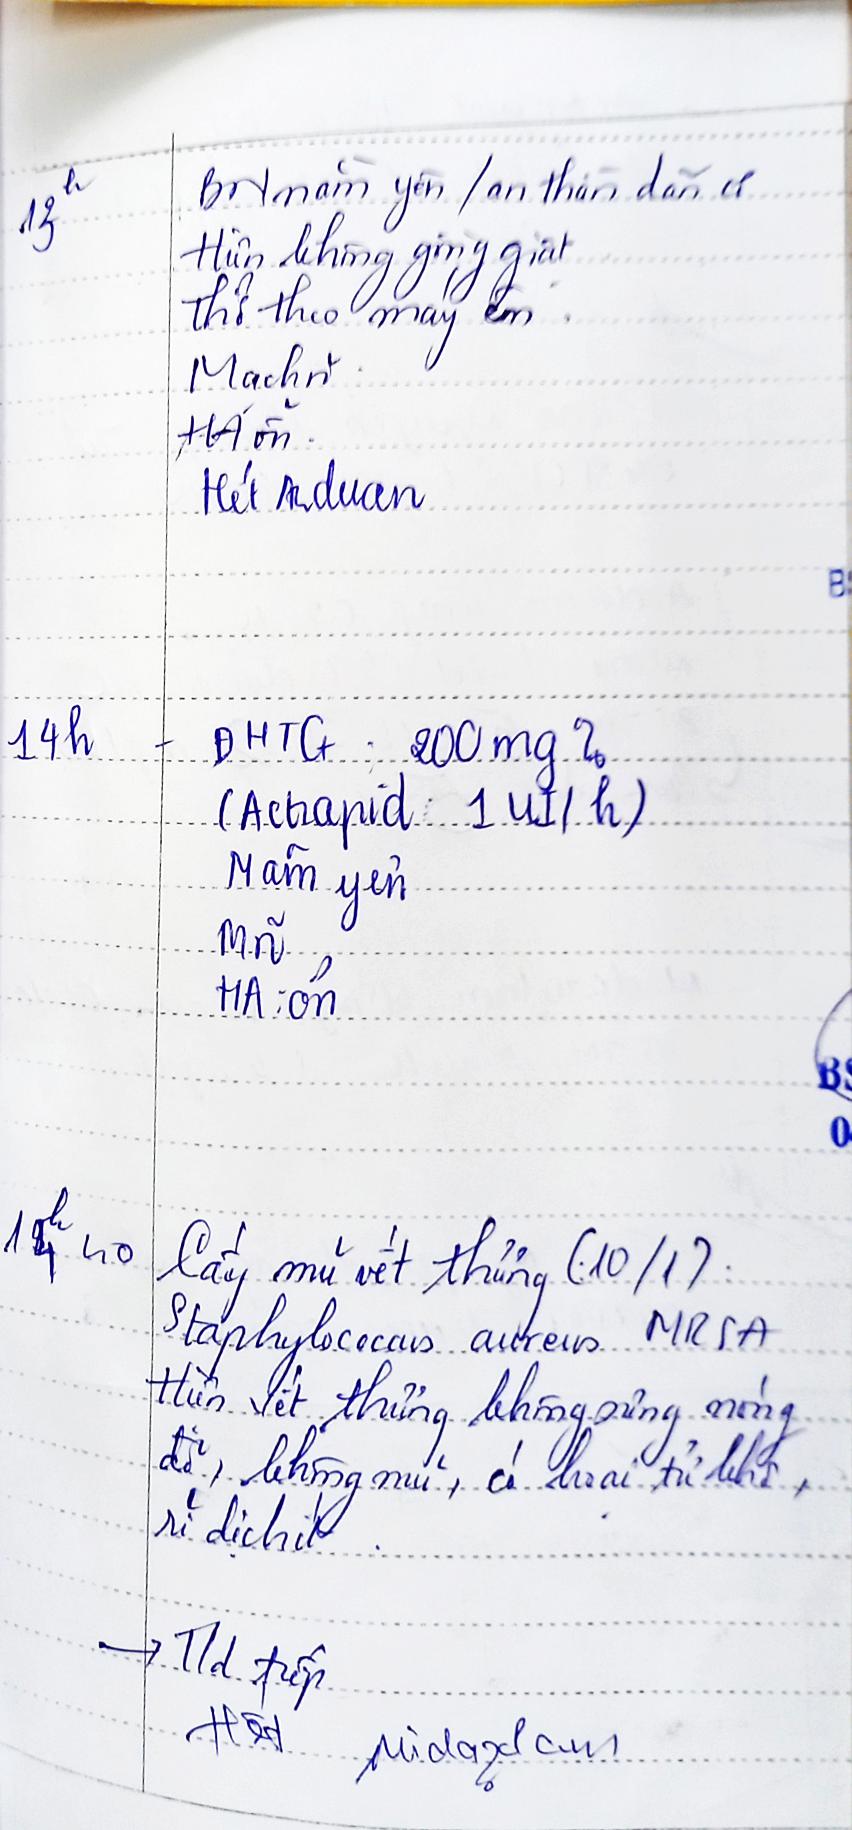 13h
BN nằm yên / an thần dãn cơ
Hiện không gồng giật
Thở theo máy êm.
Mạch rõ
HA ổn.
Hết Arduan
BS
14h - ĐHTG: 200 mg%
(Actrapid: 1 UI/h)
Nằm yên
M rõ
HA: ổn
BS
0
14h40 Cấy mủ vết thương (10/1):
Staphylococcus aureus MRSA
Hiện vết thương không sưng nóng
đỏ, không mủ, có hoại tử khô,
rỉ dịch ít.
→ T/d tiếp
Hết Midazolam